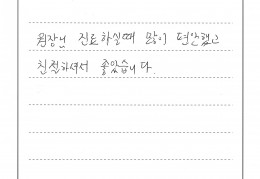 원장님 진료하실때 많이 편안했고
친절하셔서 좋았습니다.